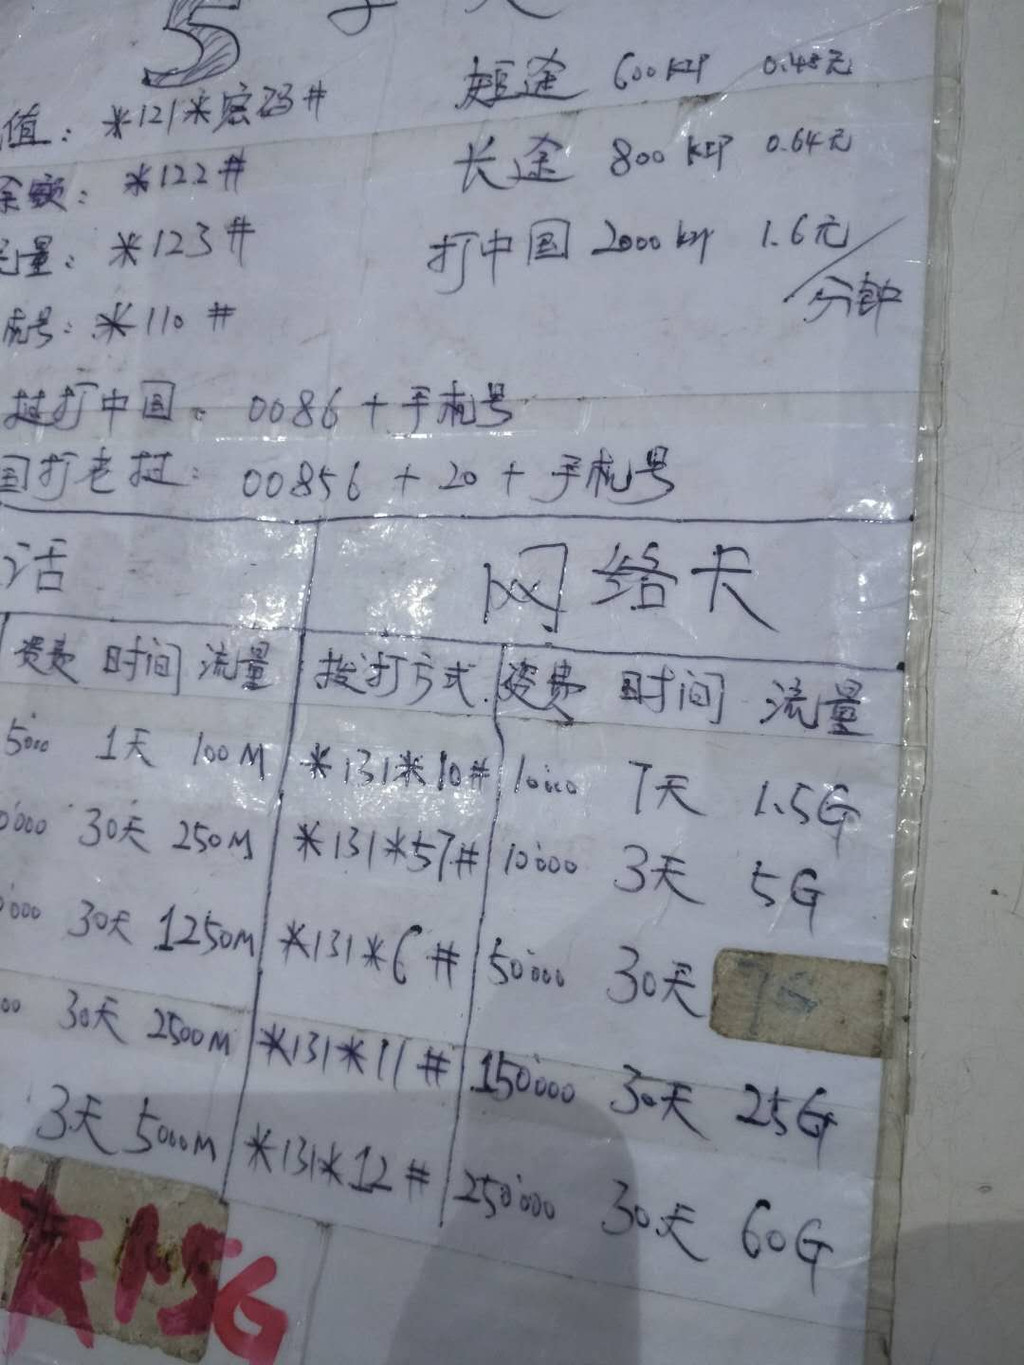 5
短途 600KIP 0.48元
值：*121*密码#
长途 800KIP 0.64元
余额：*122#
打中国 2000KIP 1.6元/分钟
量：*123#
号：*110#
挝打中国：0086+手机号
国打老挝：00856+20+手机号
话 网络卡
资费 时间 流量 拨打方式 资费 时间 流量
5000 1天 100M *131*10# 10000 7天 1.5G
0000 30天 250M *131*57# 10000 3天 5G
0000 30天 1250M *131*6# 50000 30天
00 30天 2500M *131*11# 150000 30天 25G
3天 5000M *131*12# 250000 30天 60G
天 1.5G